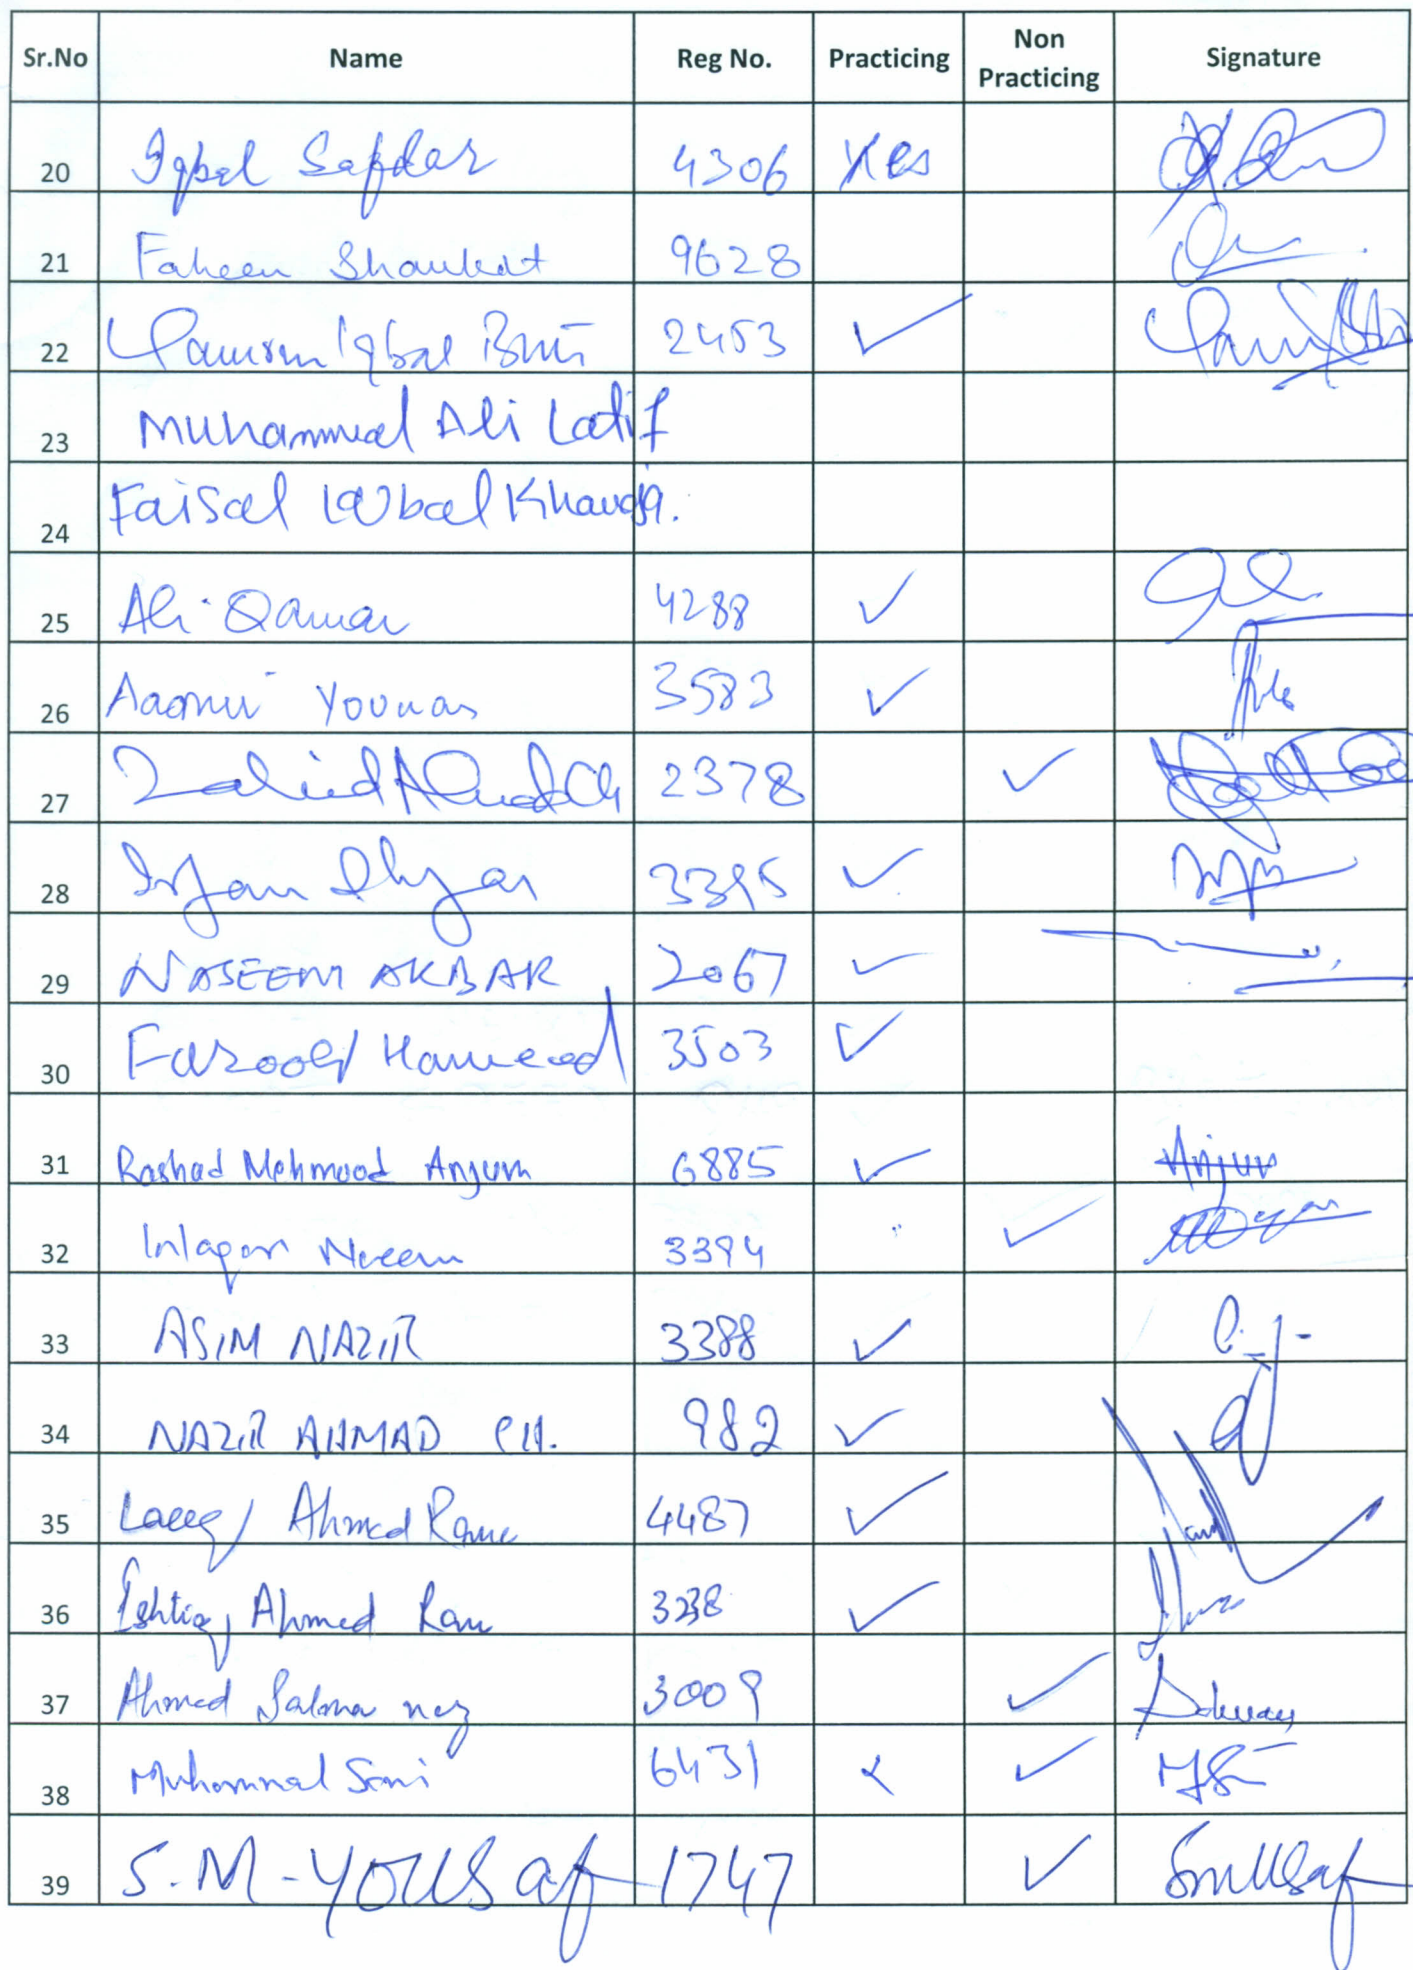 Sr.No Name Reg No. Practicing Non Practicing Signature
20 Iqbal Safdar 4306 Yes
21 Faheem Shaukat 9628
22 Iqbal Butt 2453 ✓
23 Muhammad Ali Latif
24 Faisal Iqbal Khawaja.
25 Ali Qamar 4288 ✓
26 Aaamir Younas 3583 ✓
27 Zahid 2378 ✓
28 Irfan Ilyas 3395 ✓
29 NASEEM AKBAR 2067 ✓
30 Farooq Hameed 3503 ✓
31 Rashad Mehmood Anjum 6885 ✓ Anjum
32 Naeem 3394 ✓
33 ASIM NAZIR 3388 ✓
34 NAZIR AHMAD CH. 982 ✓
35 Laeeq Ahmed Rana 4487 ✓
36 Ishtiaq Ahmed Rana 3238 ✓
37 Ahmed Salman 3009 ✓
38 Muhammad Sami 6431 ✓
39 S.M-YOUSAF 1747 ✓